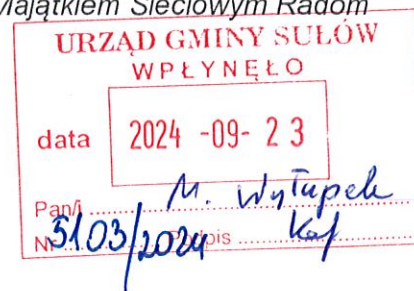 Majątkiem Sieciowym Radom
URZĄD GMINY SUŁÓW
WPŁYNĘŁO
data 2024 -09- 23
Pan/i ........ M. Wytupek
Nr 5103/2024 Podpis ........